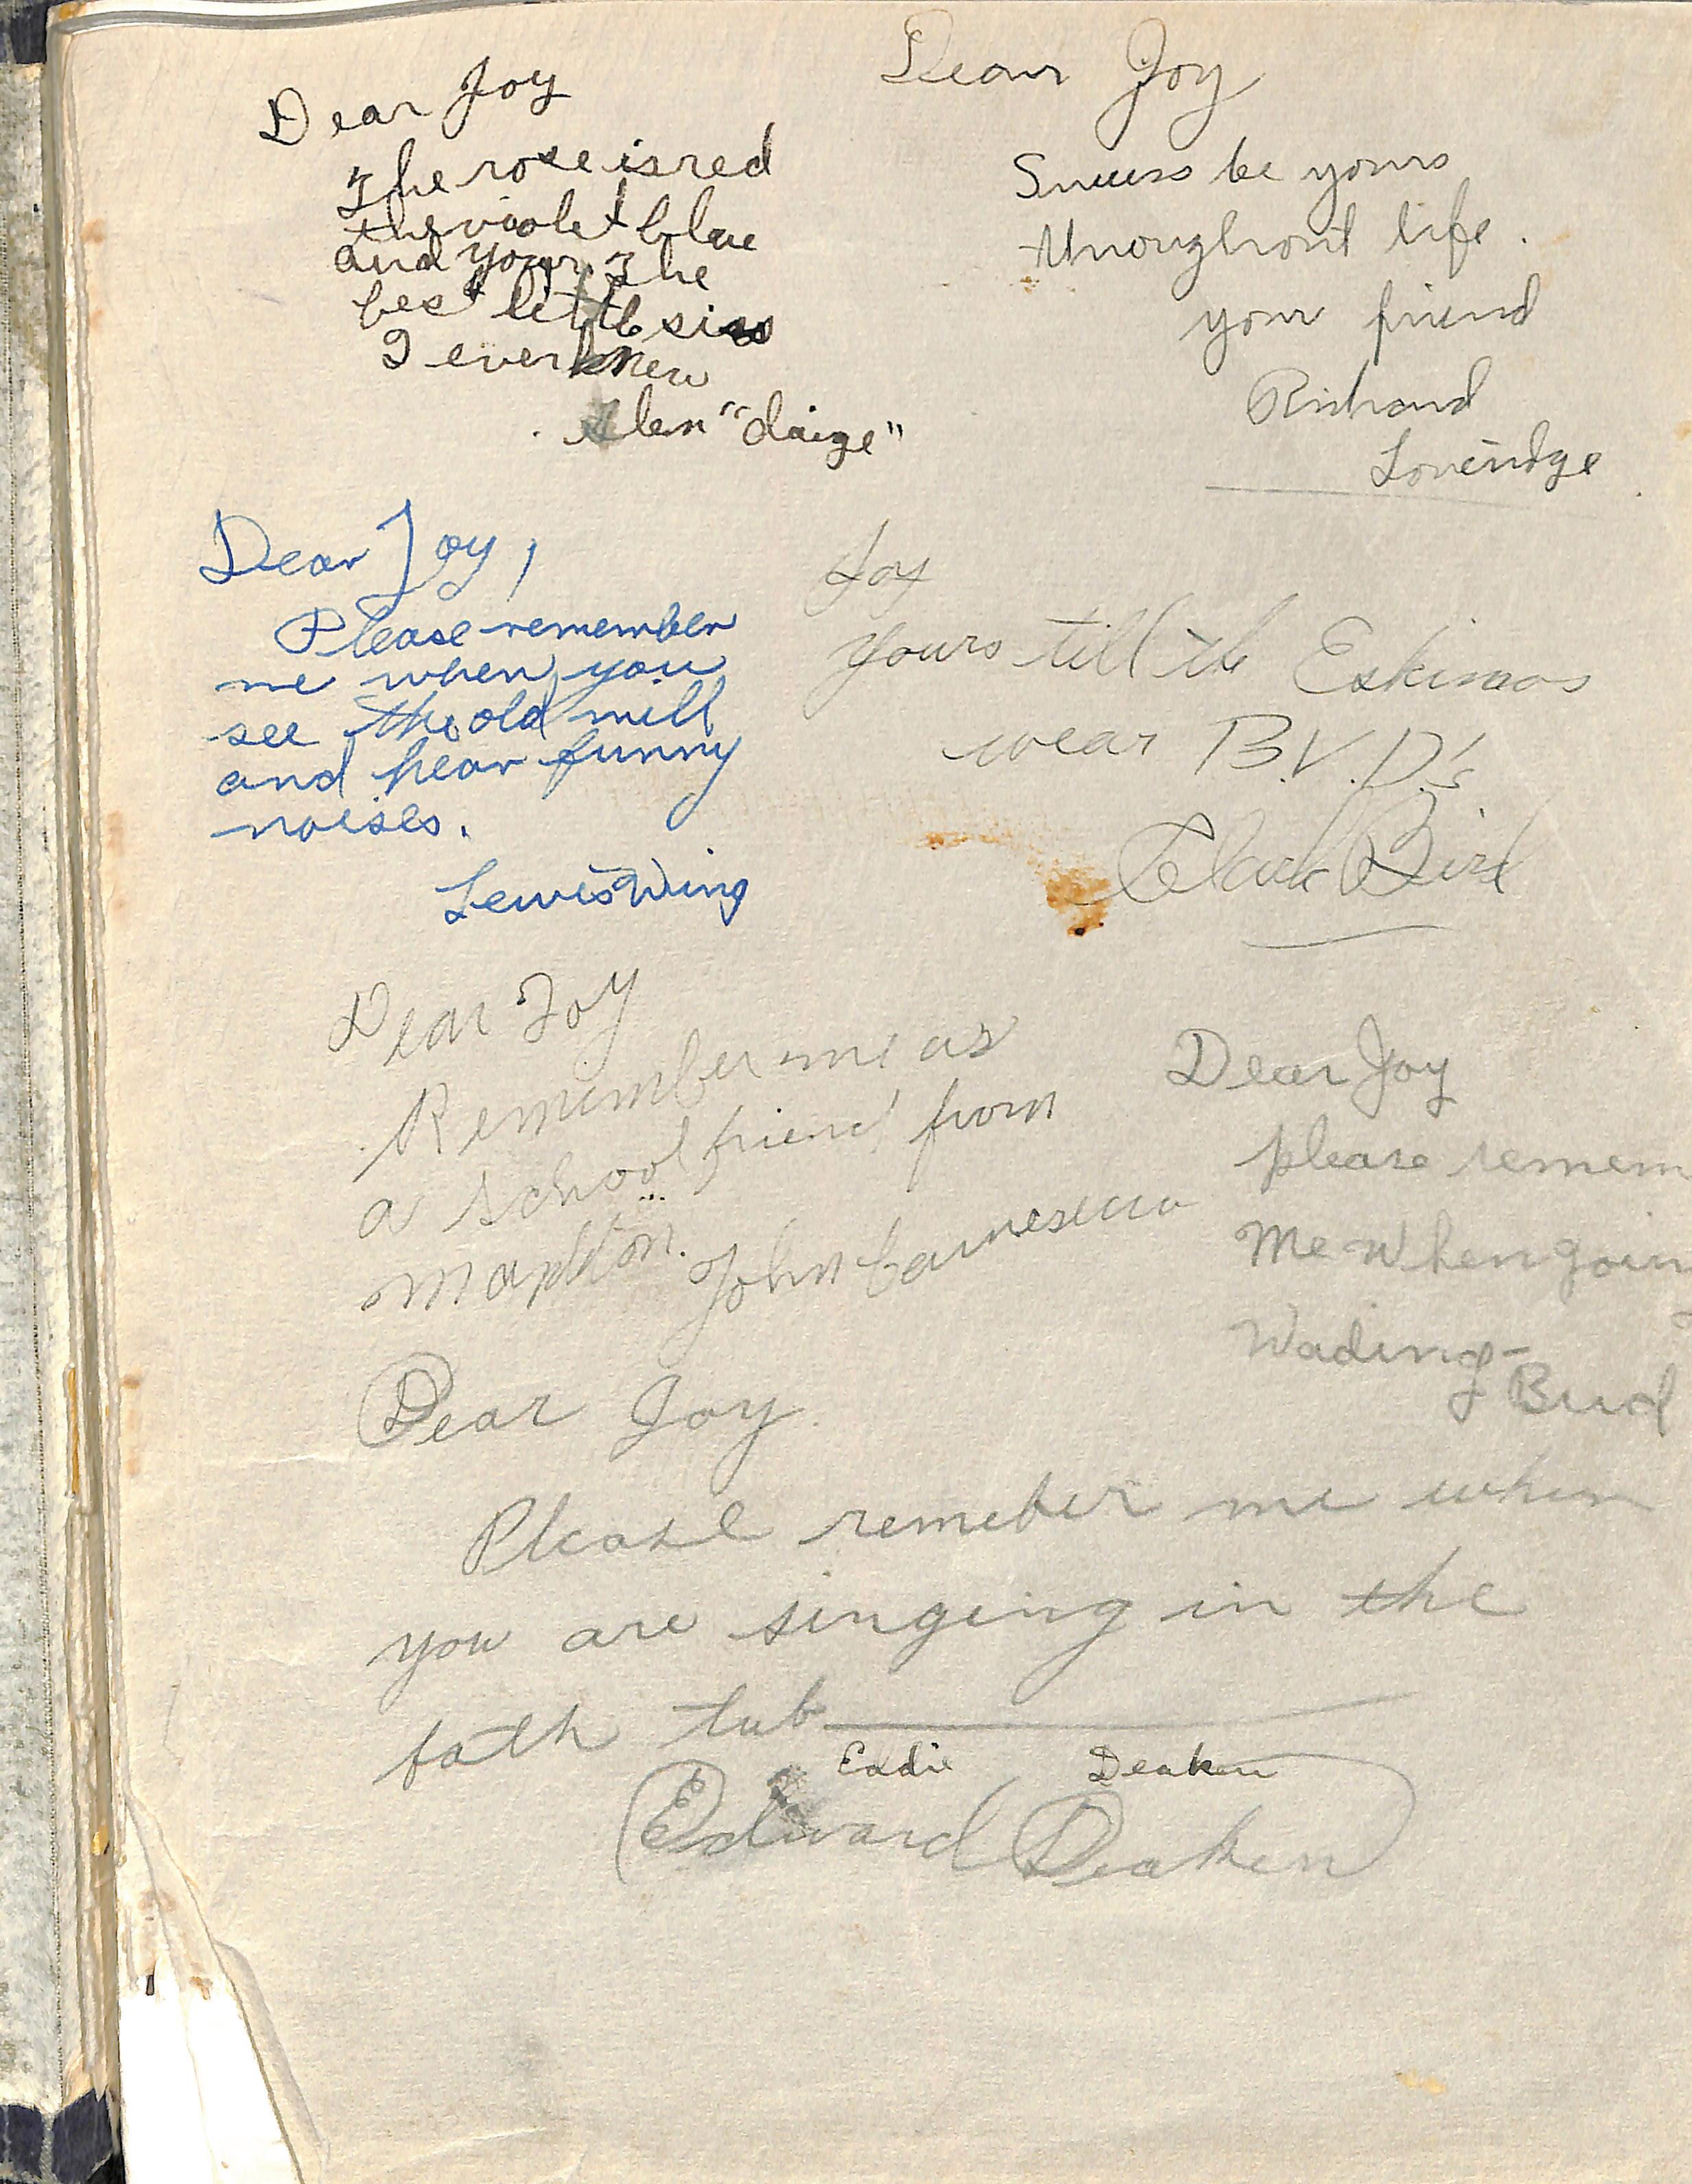 Dear Joy
The rose is red
the violet blue
and your the
best little siss
I ever knew
Glen "daige"
Dear Joy
Success be yours
throughout life.
your friend
Richard
Loveridge
Dear Joy,
Please remember
me when you
see the old mill
and hear funny
noises.
Lewis Wing
Joy
Yours till the Eskimos
wear B.V.D's
Clark Bird
Dear Joy
Remember me as
a school friend from
Mapleton.
John
Dear Joy
please remem
Me when goin
Wading-
Bud
Dear Joy.
Please remeber me when
you are singing in the
bath tub
Eddie Deaken
Edward Deaken